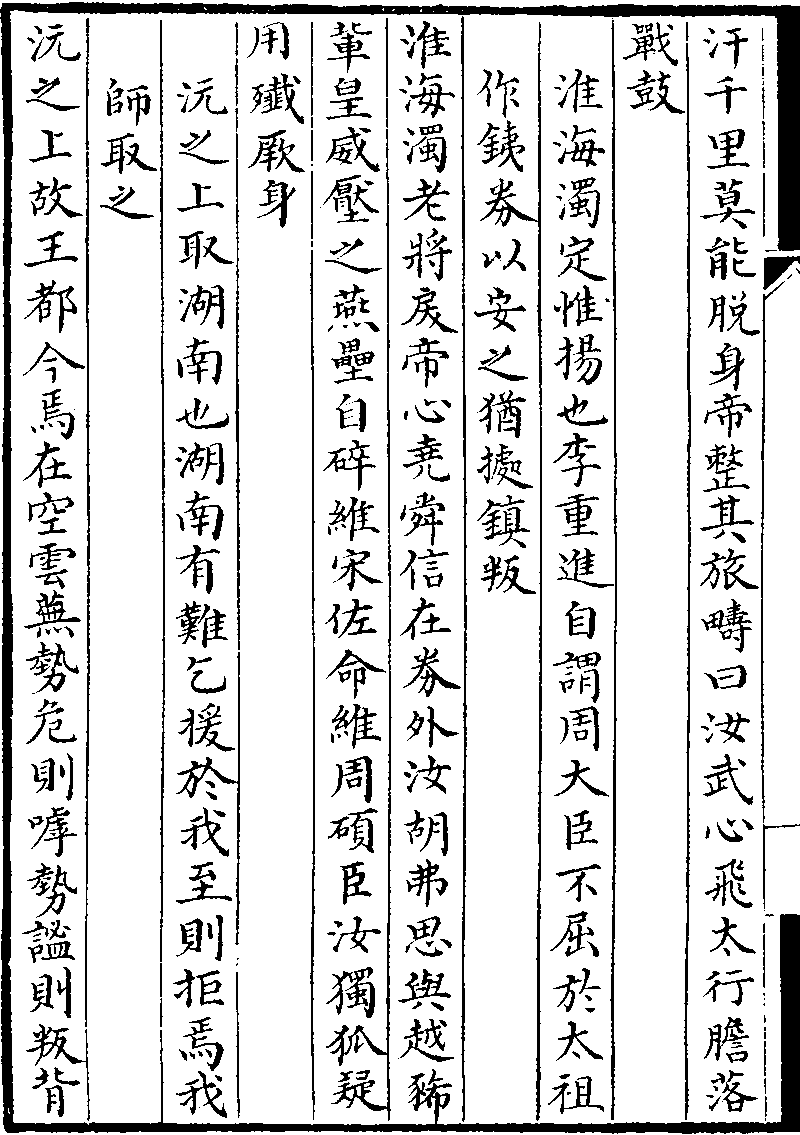 汗千里莫能脱身帝整其旅疇曰汝武心飛太行膽落
戰鼓
淮海濁定惟揚也李重進自謂周大臣不屈於太祖
作銕券以安之猶據鎮叛
淮海濁老將戾帝心堯舜信在券外汝胡弗思與越豨
軰皇威壓之燕壘自碎維宋佐命維周碩臣汝獨狐疑
用殱厥身
沅之上取湖南也湖南有難乞援於我至則拒焉我
師取之
沅之上故王都今焉在空雲蕪勢危則嘑勢謐則叛背